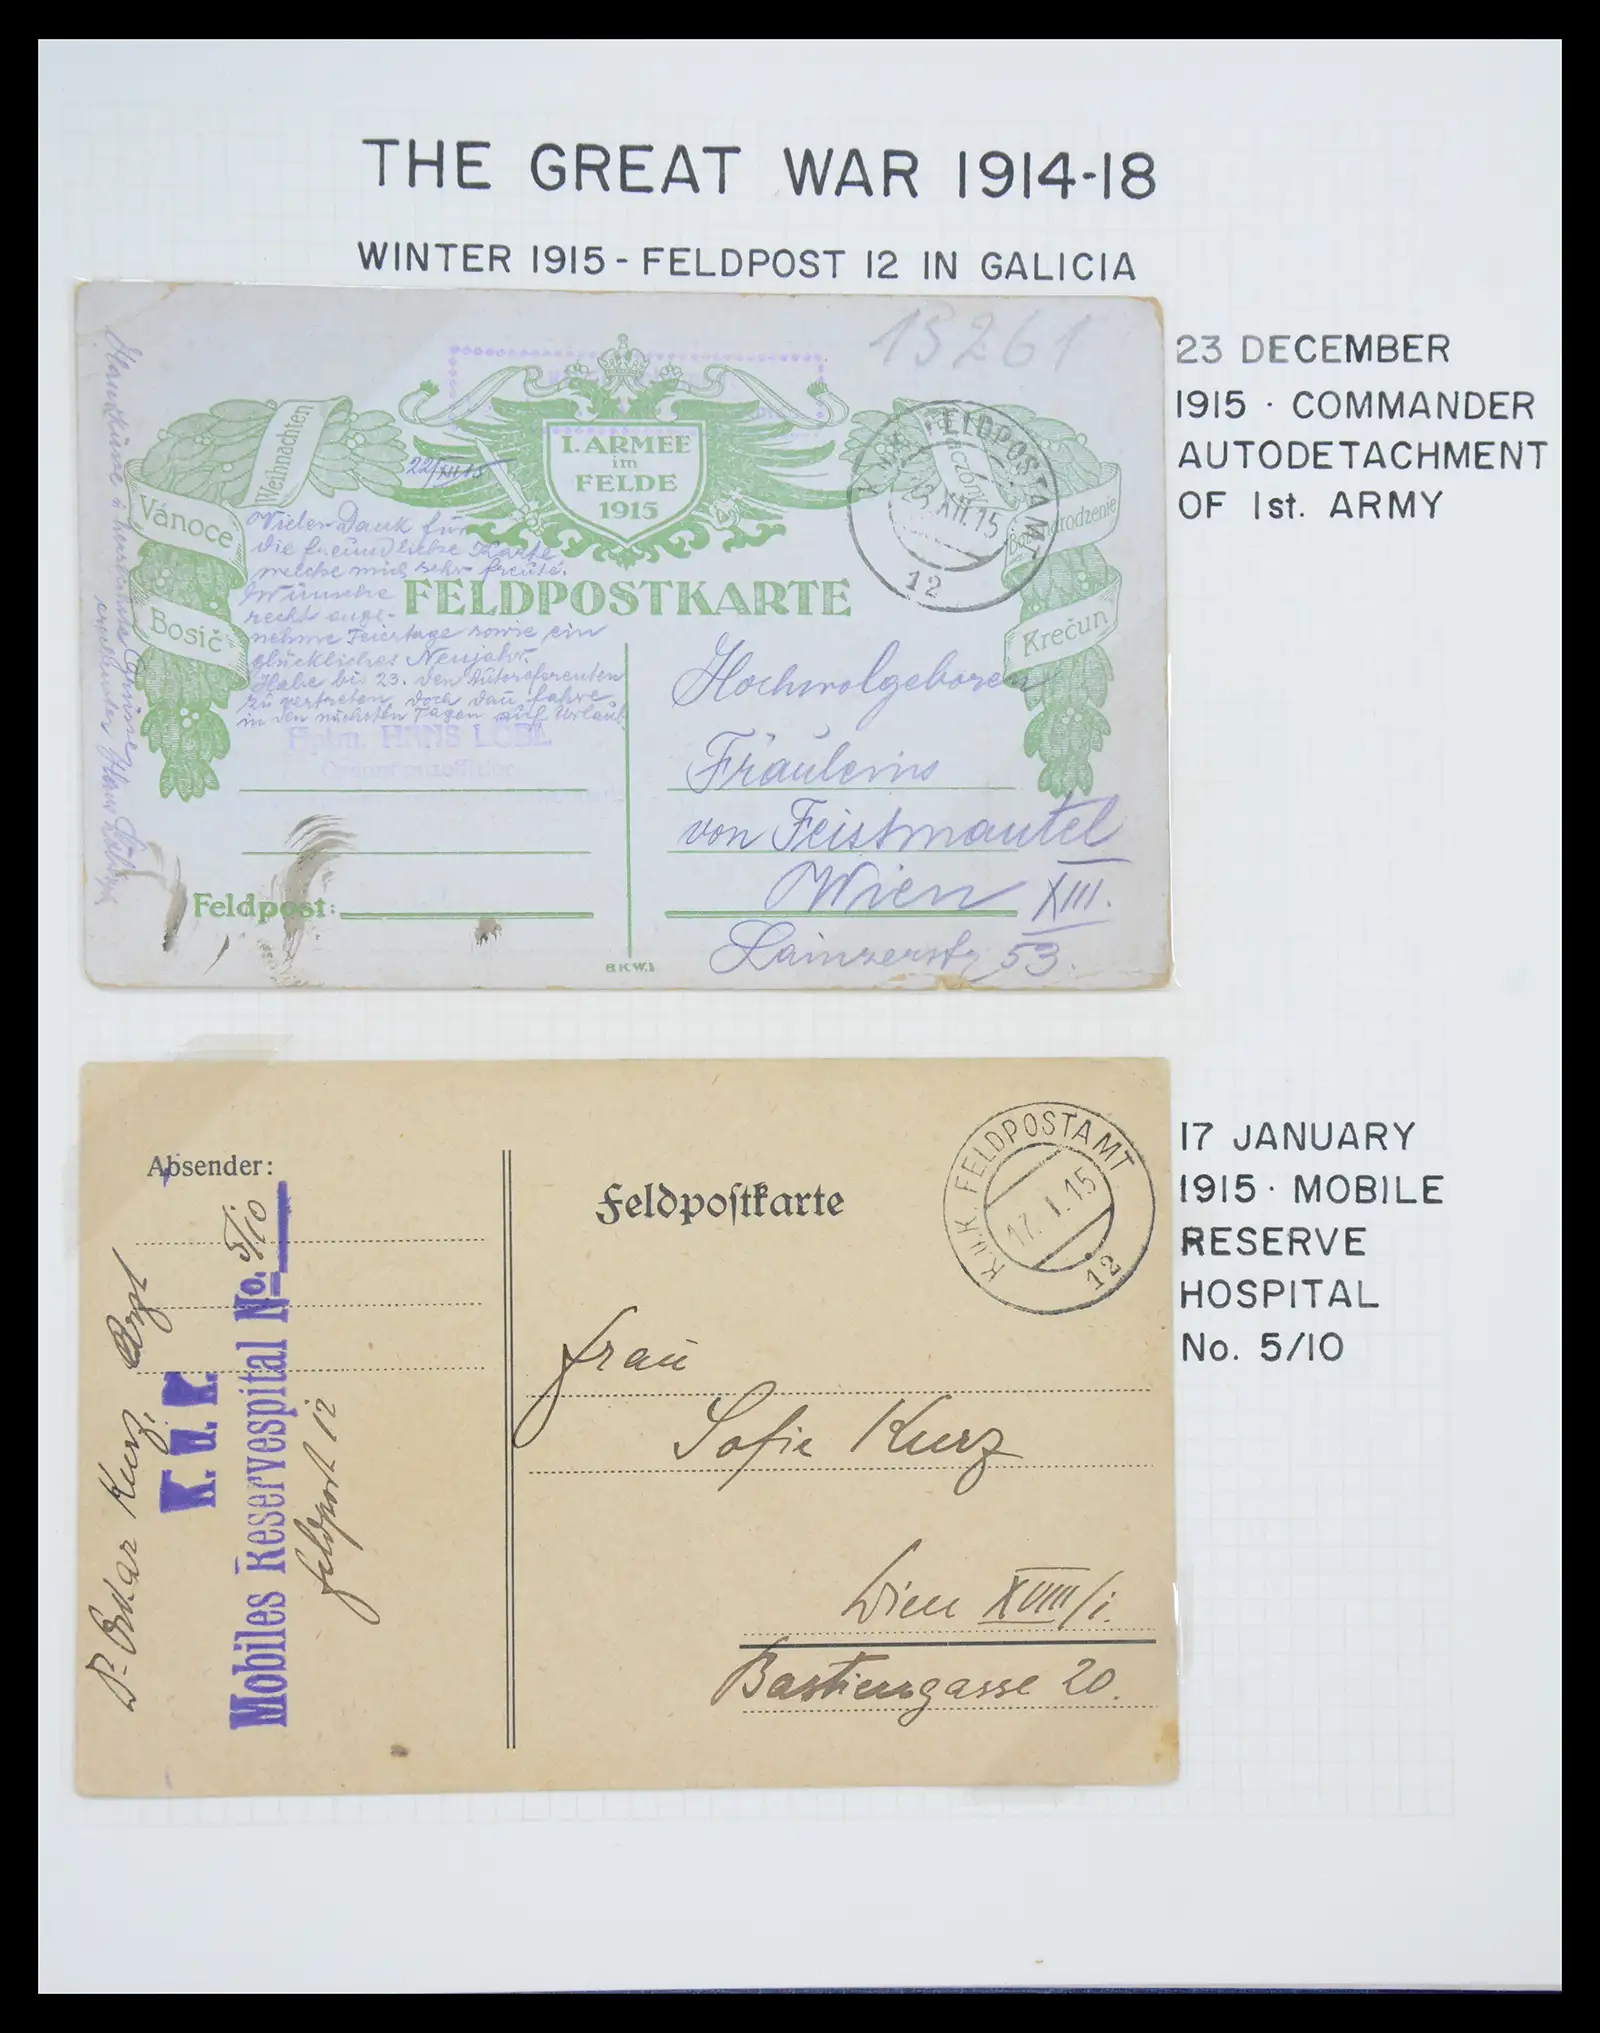 THE GREAT WAR 1914-18
WINTER 1915 - FELDPOST 12 IN GALICIA
23 DECEMBER
1915 · COMMANDER
AUTODETACHMENT
OF 1st. ARMY
13261
Weihnachten
Vánoce
Bosič
Bože narodzenie
Krečun
I. ARMEE
im
FELDE
1915
K.u.K. FELDPOSTAMT
23.XII.15
12
22/XII 15
Vielen Dank für
die freundliche Karte
welche mich sehr freute.
Wünsche
recht ange-
nehme Feiertage sowie ein
glückliches Neujahr.
Habe bis 23. den Autoreferenten
zu vertreten, doch dan fahre
in den nächsten Tagen auf Urlaub
FELDPOSTKARTE
HANS LÖBL
Hochwolgeboren
Fräuleins
von Feistmantel
Wien XIII.
Lainzerstr. 53.
Feldpost:
B.K.W.I.
17 JANUARY
1915 · MOBILE
RESERVE
HOSPITAL
No. 5/10
Absender:
Dr Oskar Kurz, Arzt
K. u. K.
Mobiles Reservespital No. 5/10
Feldpost 12
Feldpostkarte
K.u.K. FELDPOSTAMT
17.I.15
12
Frau
Sofie Kurz
Wien XVIII/1.
Bastiengasse 20.